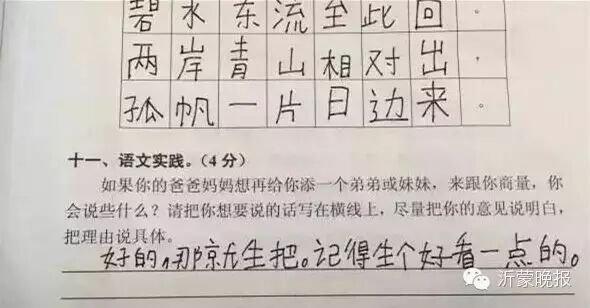 碧水东流至此回。
两岸青山相对出，
孤帆一片日边来。
十一、语文实践。（4分）
如果你的爸爸妈妈想再给你添一个弟弟或妹妹，来跟你商量，你
会说些什么？请把你想要说的话写在横线上，尽量把你的意见说明白，
把理由说具体。
好的，那就生把。记得生个好看一点的。
沂蒙晚报